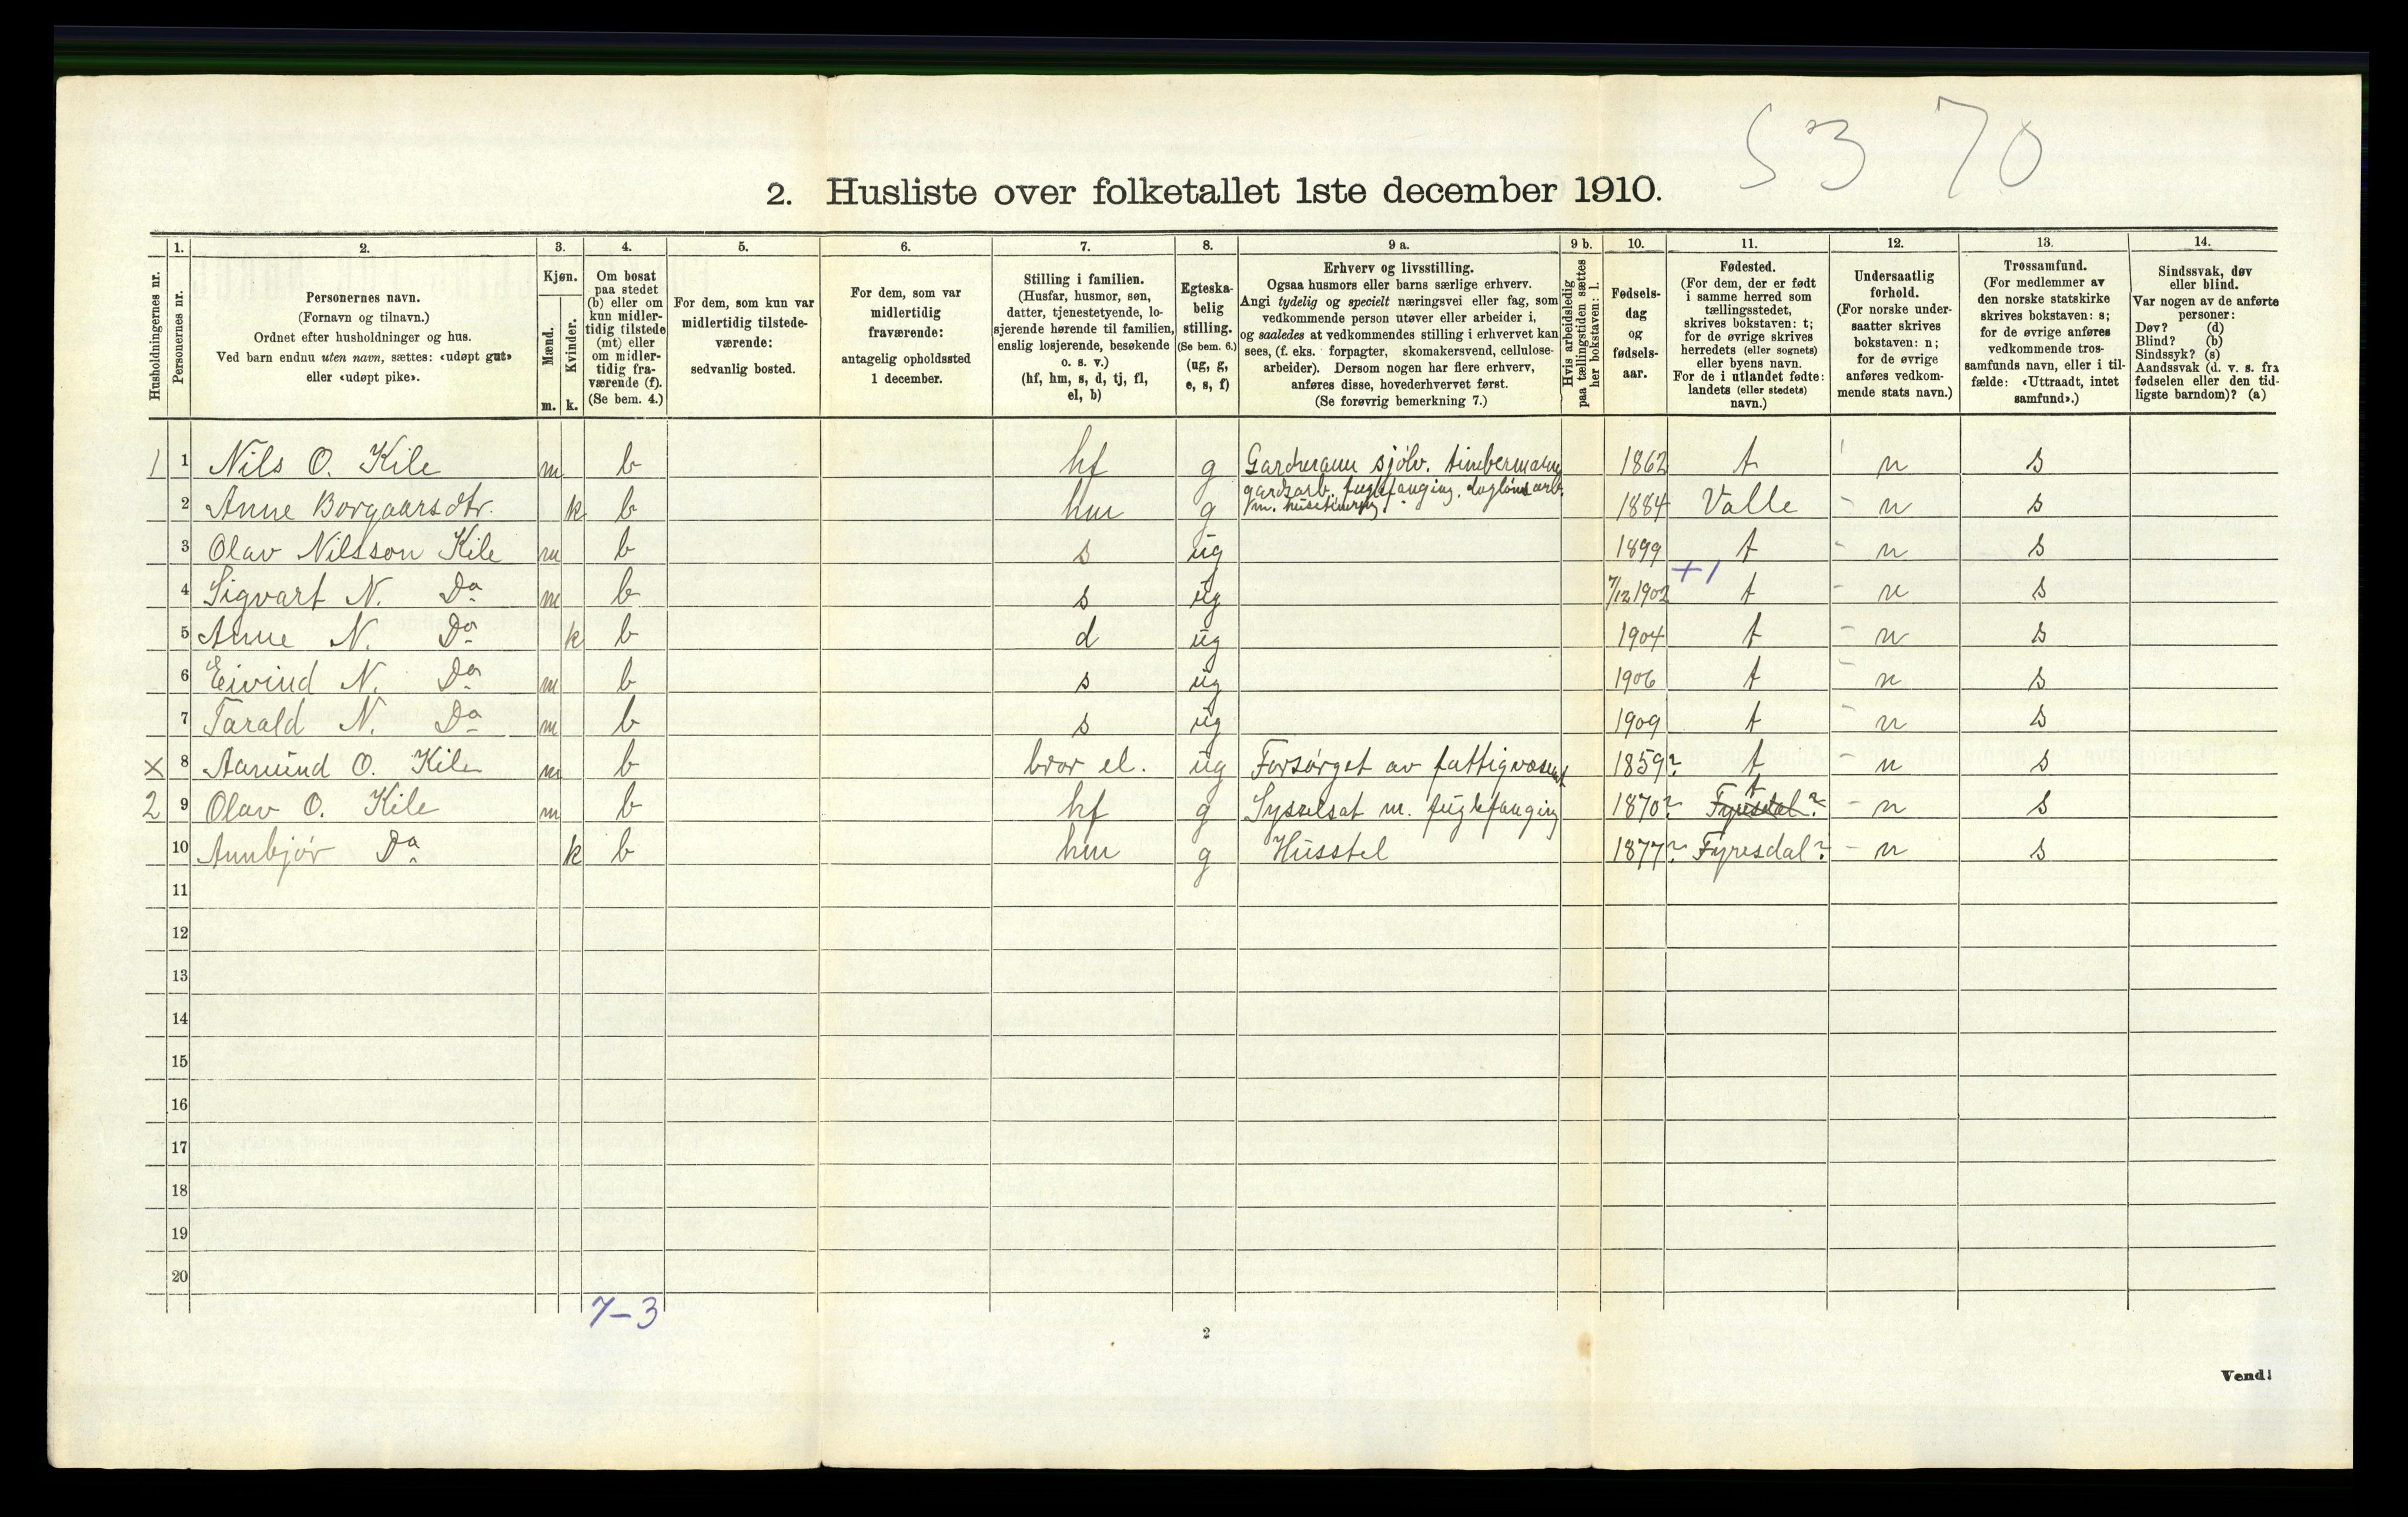 53 70
2. Husliste over folketallet 1ste december 1910.
Husholdningernes nr.
1.
Personernes nr.
2.
Personernes navn.
(Fornavn og tilnavn.)
Ordnet efter husholdninger og hus.
Ved barn endnu uten navn, sættes: «udøpt gut»
eller «udøpt pike».
3.
Kjøn.
Mænd.
Kvinder.
m. k.
4.
Om bosat
paa stedet
(b) eller om
kun midler-
tidig tilstede
(mt) eller
om midler-
tidig fra-
værende (f).
(Se bem. 4.)
5.
For dem, som kun var
midlertidig tilstede-
værende:
sedvanlig bosted.
6.
For dem, som var
midlertidig
fraværende:
antagelig opholdssted
1 december.
7.
Stilling i familien.
(Husfar, husmor, søn,
datter, tjenestetyende, lo-
sjerende hørende til familien,
enslig losjerende, besøkende
o. s. v.)
(hf, hm, s, d, tj, fl,
el, b)
8.
Egteska-
belig
stilling.
(Se bem. 6.)
(ug, g,
e, s, f)
9 a.
Erhverv og livsstilling.
Ogsaa husmors eller barns særlige erhverv.
Angi tydelig og specielt næringsvei eller fag, som
vedkommende person utøver eller arbeider i,
og saaledes at vedkommendes stilling i erhvervet kan
sees, (f. eks. forpagter, skomakersvend, cellulose-
arbeider). Dersom nogen har flere erhverv,
anføres disse, hovederhvervet først.
(Se forøvrig bemerkning 7.)
9 b.
Hvis arbeidsledig
paa tællingstiden sættes
her bokstaven: l.
10.
Fødsels-
dag
og
fødsels-
aar.
11.
Fødested.
(For dem, der er født
i samme herred som
tællingsstedet,
skrives bokstaven: t;
for de øvrige skrives
herredets (eller sognets)
eller byens navn.
For de i utlandet fødte:
landets (eller stedets)
navn.)
12.
Undersaatlig
forhold.
(For norske under-
saatter skrives
bokstaven: n;
for de øvrige
anføres vedkom-
mende stats navn.)
13.
Trossamfund.
(For medlemmer av
den norske statskirke
skrives bokstaven: s;
for de øvrige anføres
vedkommende tros-
samfunds navn, eller i til-
fælde: «Uttraadt, intet
samfund».)
14.
Sindssvak, døv
eller blind.
Var nogen av de anførte
personer:
Døv? (d)
Blind? (b)
Sindssyk? (s)
Aandssvak (d. v. s. fra
fødselen eller den tid-
ligste barndom)? (a)
1 1 Nils O. Kile m b hf g Gardmann sjölv. timbermann 1862 t n s
2 Anne Borgaarsdtr. k b hm g gardsarb. fuglefanging. daglönsarb. 1884 Valle - n s
m.
3 Olav Nilsson Kile m b s ug 1899 t - n s
+1
4 Sigvart N. Do m b s ug 7/12 1902 t - n s
5 Anne N. Do k b d ug 1904 t - n s
6 Eivind N. Do m b s ug 1906 t - n s
7 Tarald N. Do m b s ug 1909 t - n s
x 8 Aamund O. Kile m b bror el. ug Forsörget av fattigvæsenet 1859? t - n s
2 9 Olav O. Kile m b hf g Sysselsat m. fuglefanging 1870? t Fyresdal? - n s
10 Annbjör Do k b hm g Husstel 1877? Fyresdal? - n s
11
12
13
14
15
16
17
18
19
20
7-3
2
Vend!